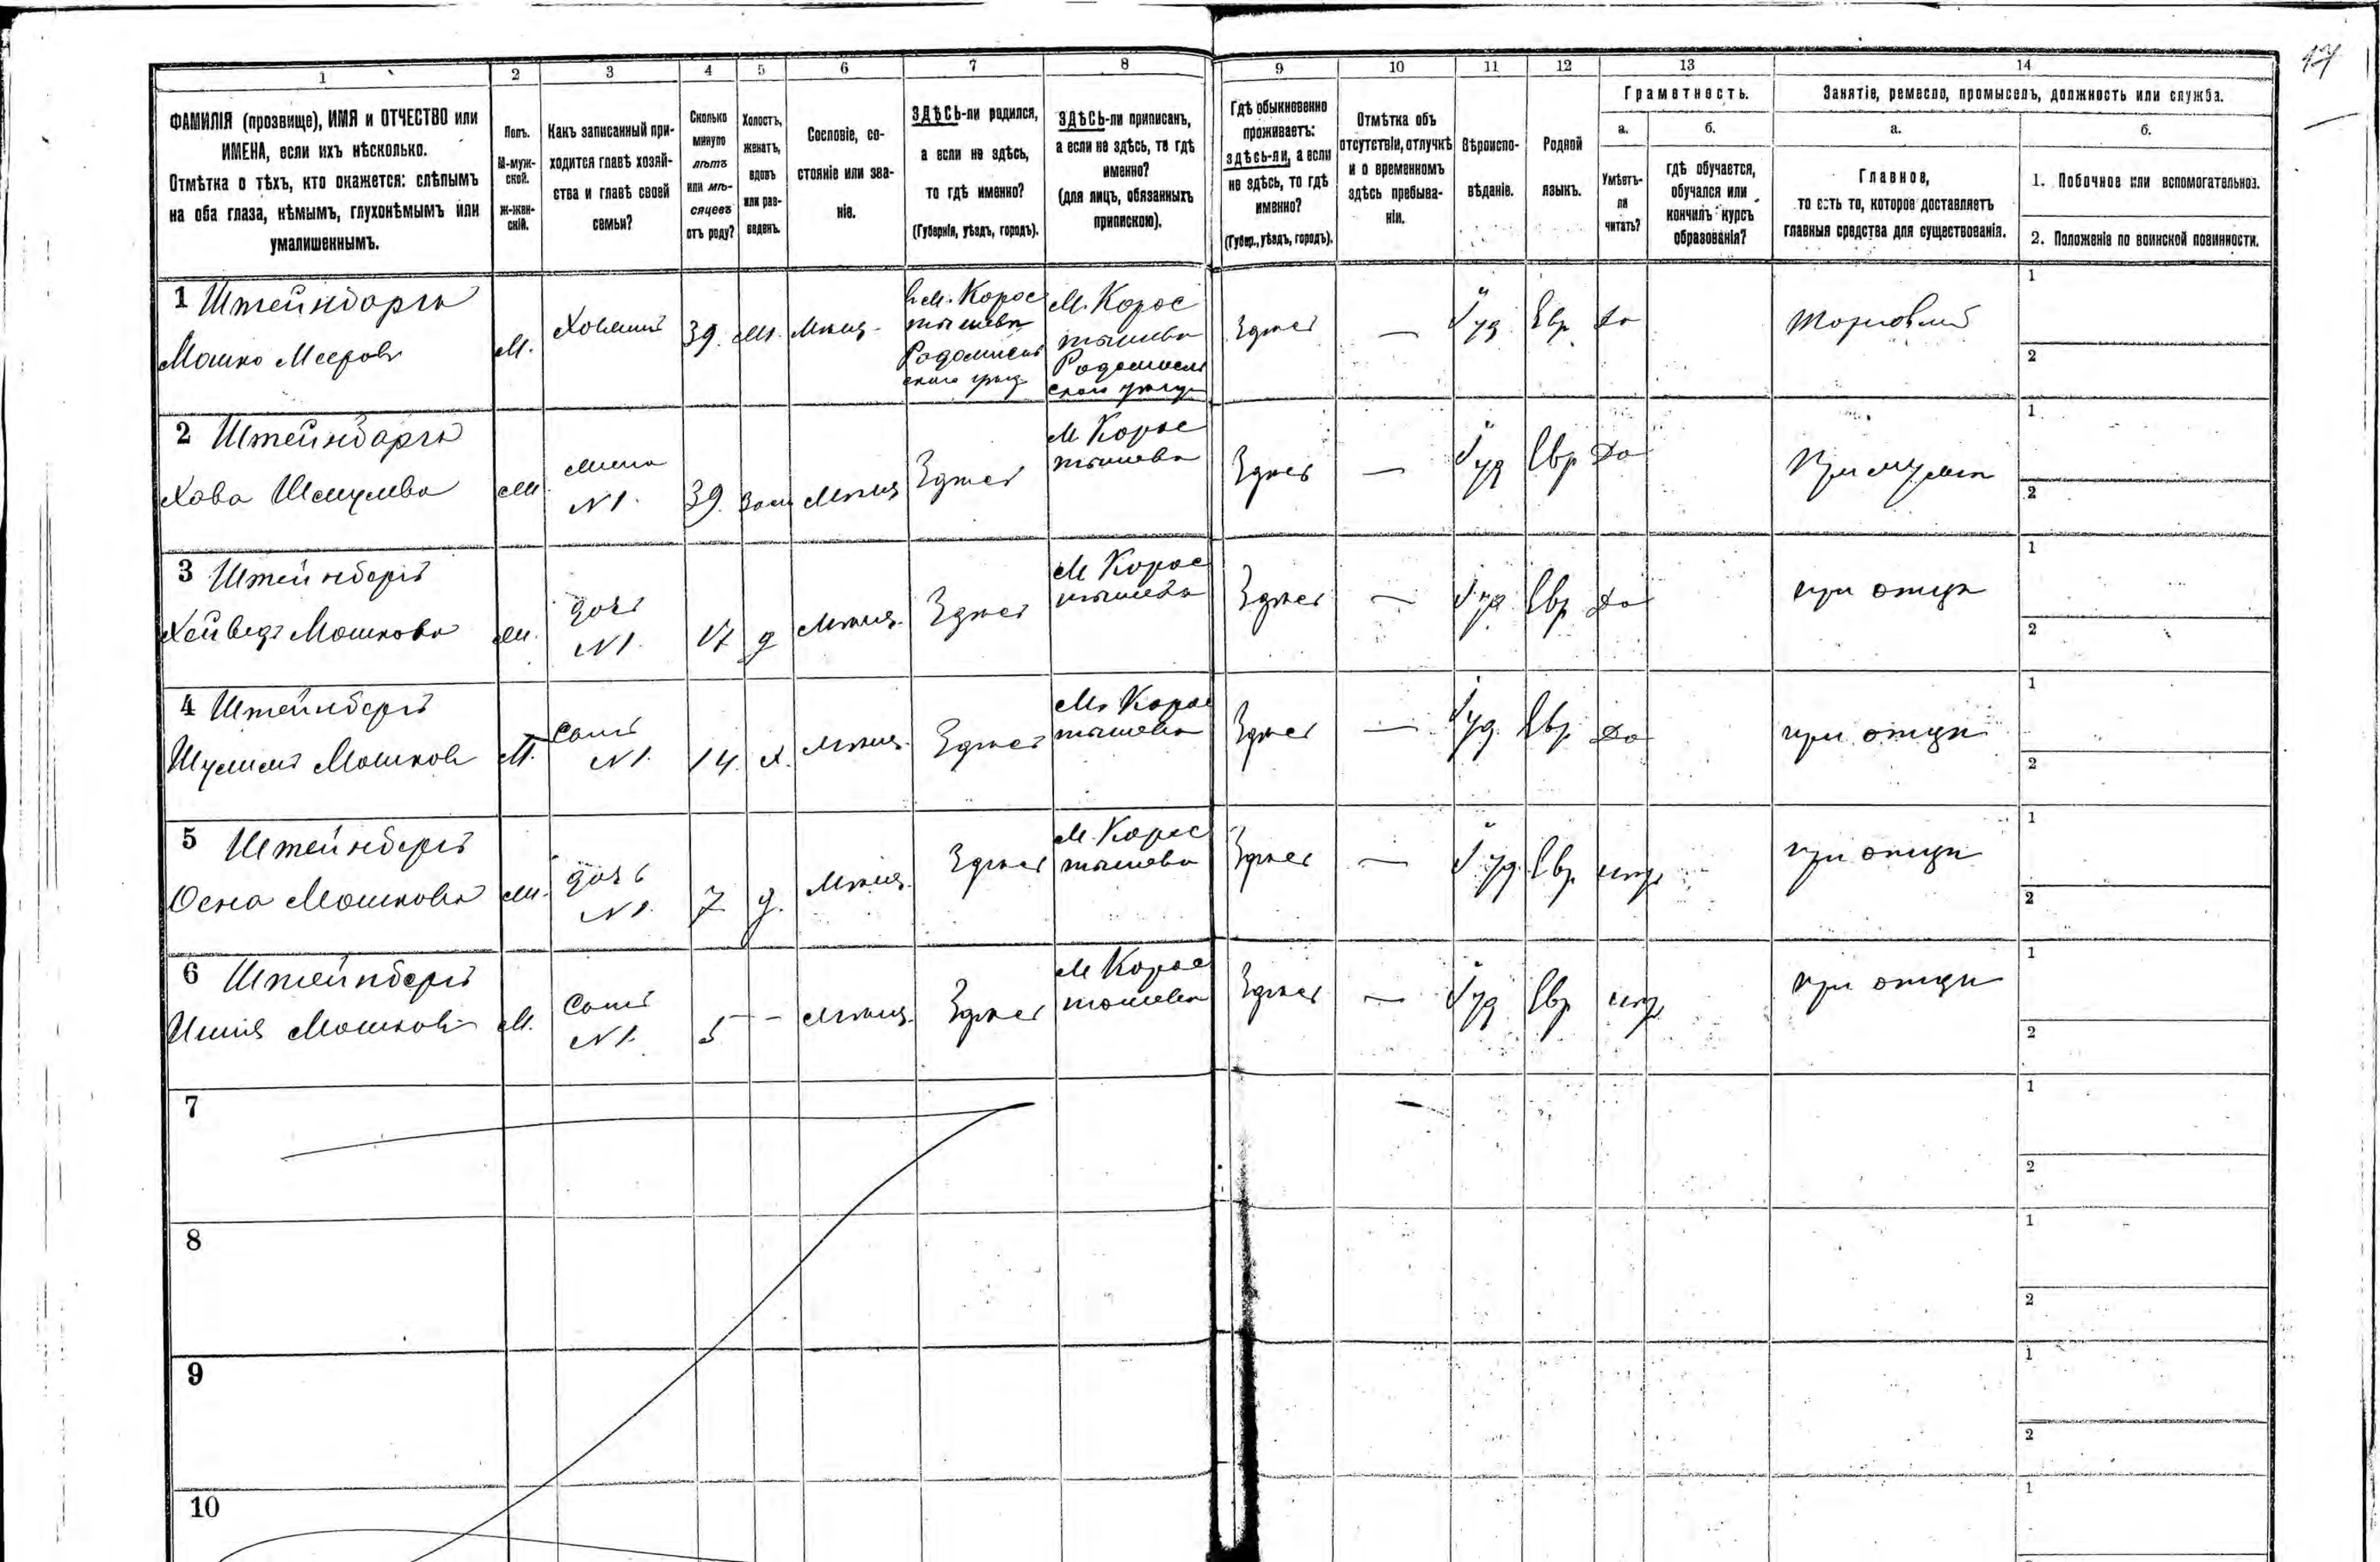 17
1 2 3 4 5 6 7 8 9 10 11 12 13 14
ФАМИЛІЯ (прозвище), ИМЯ и ОТЧЕСТВО или
ИМЕНА, если ихъ нѣсколько.
Отмѣтка о тѣхъ, кто окажется: слѣпымъ
на оба глаза, нѣмымъ, глухонѣмымъ или
умалишеннымъ.
Полъ.
М-муж-
ской.
Ж-жен-
скій.
Какъ записанный при-
ходится главѣ хозяй-
ства и главѣ своей
семьи?
Сколько
минуло
лѣтъ
или мѣ-
сяцевъ
отъ роду?
Холостъ,
женатъ,
вдовъ
или раз-
веденъ.
Сословіе, со-
стояніе или зва-
ніе.
ЗДѢСЬ-ли родился,
а если не здѣсь,
то гдѣ именно?
(Губернія, уѣздъ, городъ).
ЗДѢСЬ-ли приписанъ,
а если не здѣсь, то гдѣ
именно?
(для лицъ, обязанныхъ
припискою).
Гдѣ обыкновенно
проживаетъ:
здѣсь-ли, а если
не здѣсь, то гдѣ
именно?
(Губер., уѣздъ, городъ).
Отмѣтка объ
отсутствіи, отлучкѣ
и о временномъ
здѣсь пребыва-
ніи.
Вѣроиспо-
вѣданіе.
Родной
языкъ.
Грамотность.
а.
Умѣетъ-
ли
читать?
б.
гдѣ обучается,
обучался или
кончилъ курсъ
образованія?
Занятіе, ремесло, промыселъ, должность или служба.
а.
Главное,
то есть то, которое доставляетъ
главныя средства для существованія.
б.
1. Побочное или вспомогательное.
2. Положеніе по воинской повинности.
1 Штейнбергъ
Мошко Мееровъ
М.
39.
Мѣщ.
М. Корос
тышевъ
Здѣсь
—
Іуд
Евр
Да
1
2
2 Штейнбергъ
Хава
жена
№ 1.
39.
Зам
Мѣщ
Здѣсь
М. Корос
тышевъ
Здѣсь
—
Іуд
Евр
Да
При мужѣ
1
2
3 Штейнбергъ
Мошкова
дочь
№ 1.
17
д
Мѣщ.
Здѣсь
М. Корос
тышевъ
Здѣсь
—
Іуд
Евр
Да
при отцѣ
1
2
4 Штейнбергъ
Мошковъ
М.
Сынъ
№ 1.
14.
х.
Мѣщ.
Здѣсь
М. Корос
тышевъ
Здѣсь
—
Іуд.
Евр
Да
при отцѣ
1
2
5 Штейнбергъ
Мошкова
дочь
№ 1.
7
д.
Мѣщ.
Здѣсь
М. Корос
тышевъ
Здѣсь
—
Іуд.
Евр.
нѣтъ
при отцѣ
1
2
6 Штейнбергъ
Мошковъ
М.
Сынъ
№ 1.
5
—
Мѣщ.
Здѣсь
М. Корос
тышевъ
Здѣсь
—
Іуд
Евр
нѣтъ
при отцѣ
1
2
7
1
2
8
1
2
9
1
2
10
1